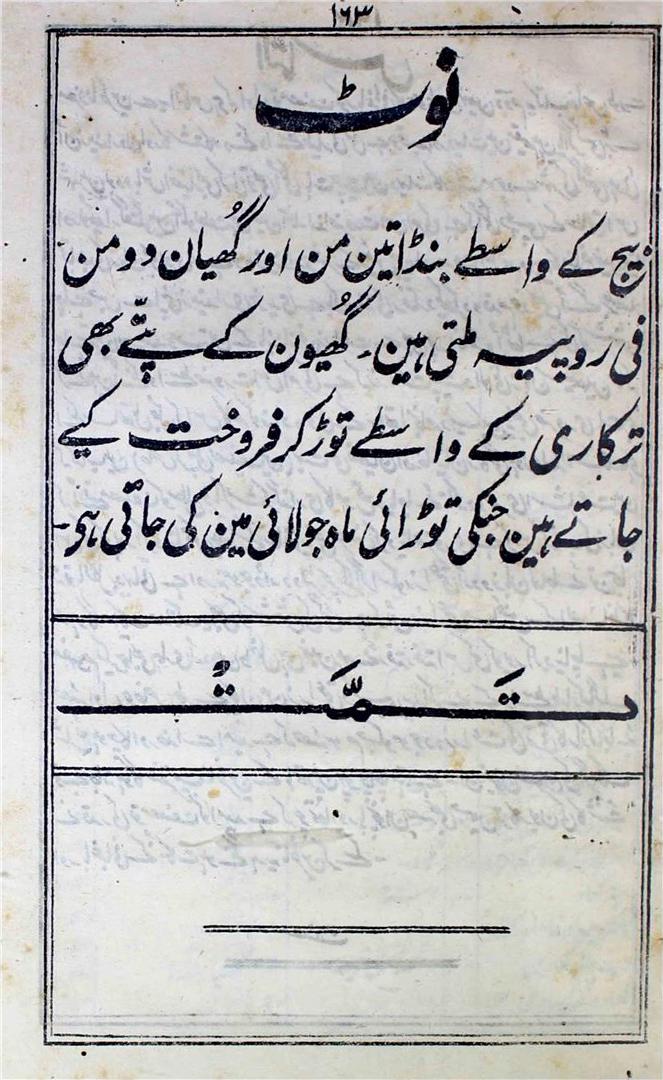 ۱۶۳
نوٹ
بیج کے واسطے بنڈا تین من اور گُھیان دو من
فی روپیہ ملتی ہین۔ گُھیون کے پتّے بھی
ترکاری کے واسطے توڑ کر فروخت کیے
جاتے ہین جنکی توڑائی ماہ جولائی مین کی جاتی ہی۔
تَمَّتْ